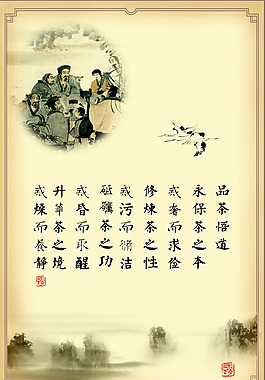 品茶悟道
永保茶之本
戒奢而求俭
修煉茶之性
戒污而衛洁
砥礪茶之功
戒昏而求醒
升華茶之境
戒燥而養靜